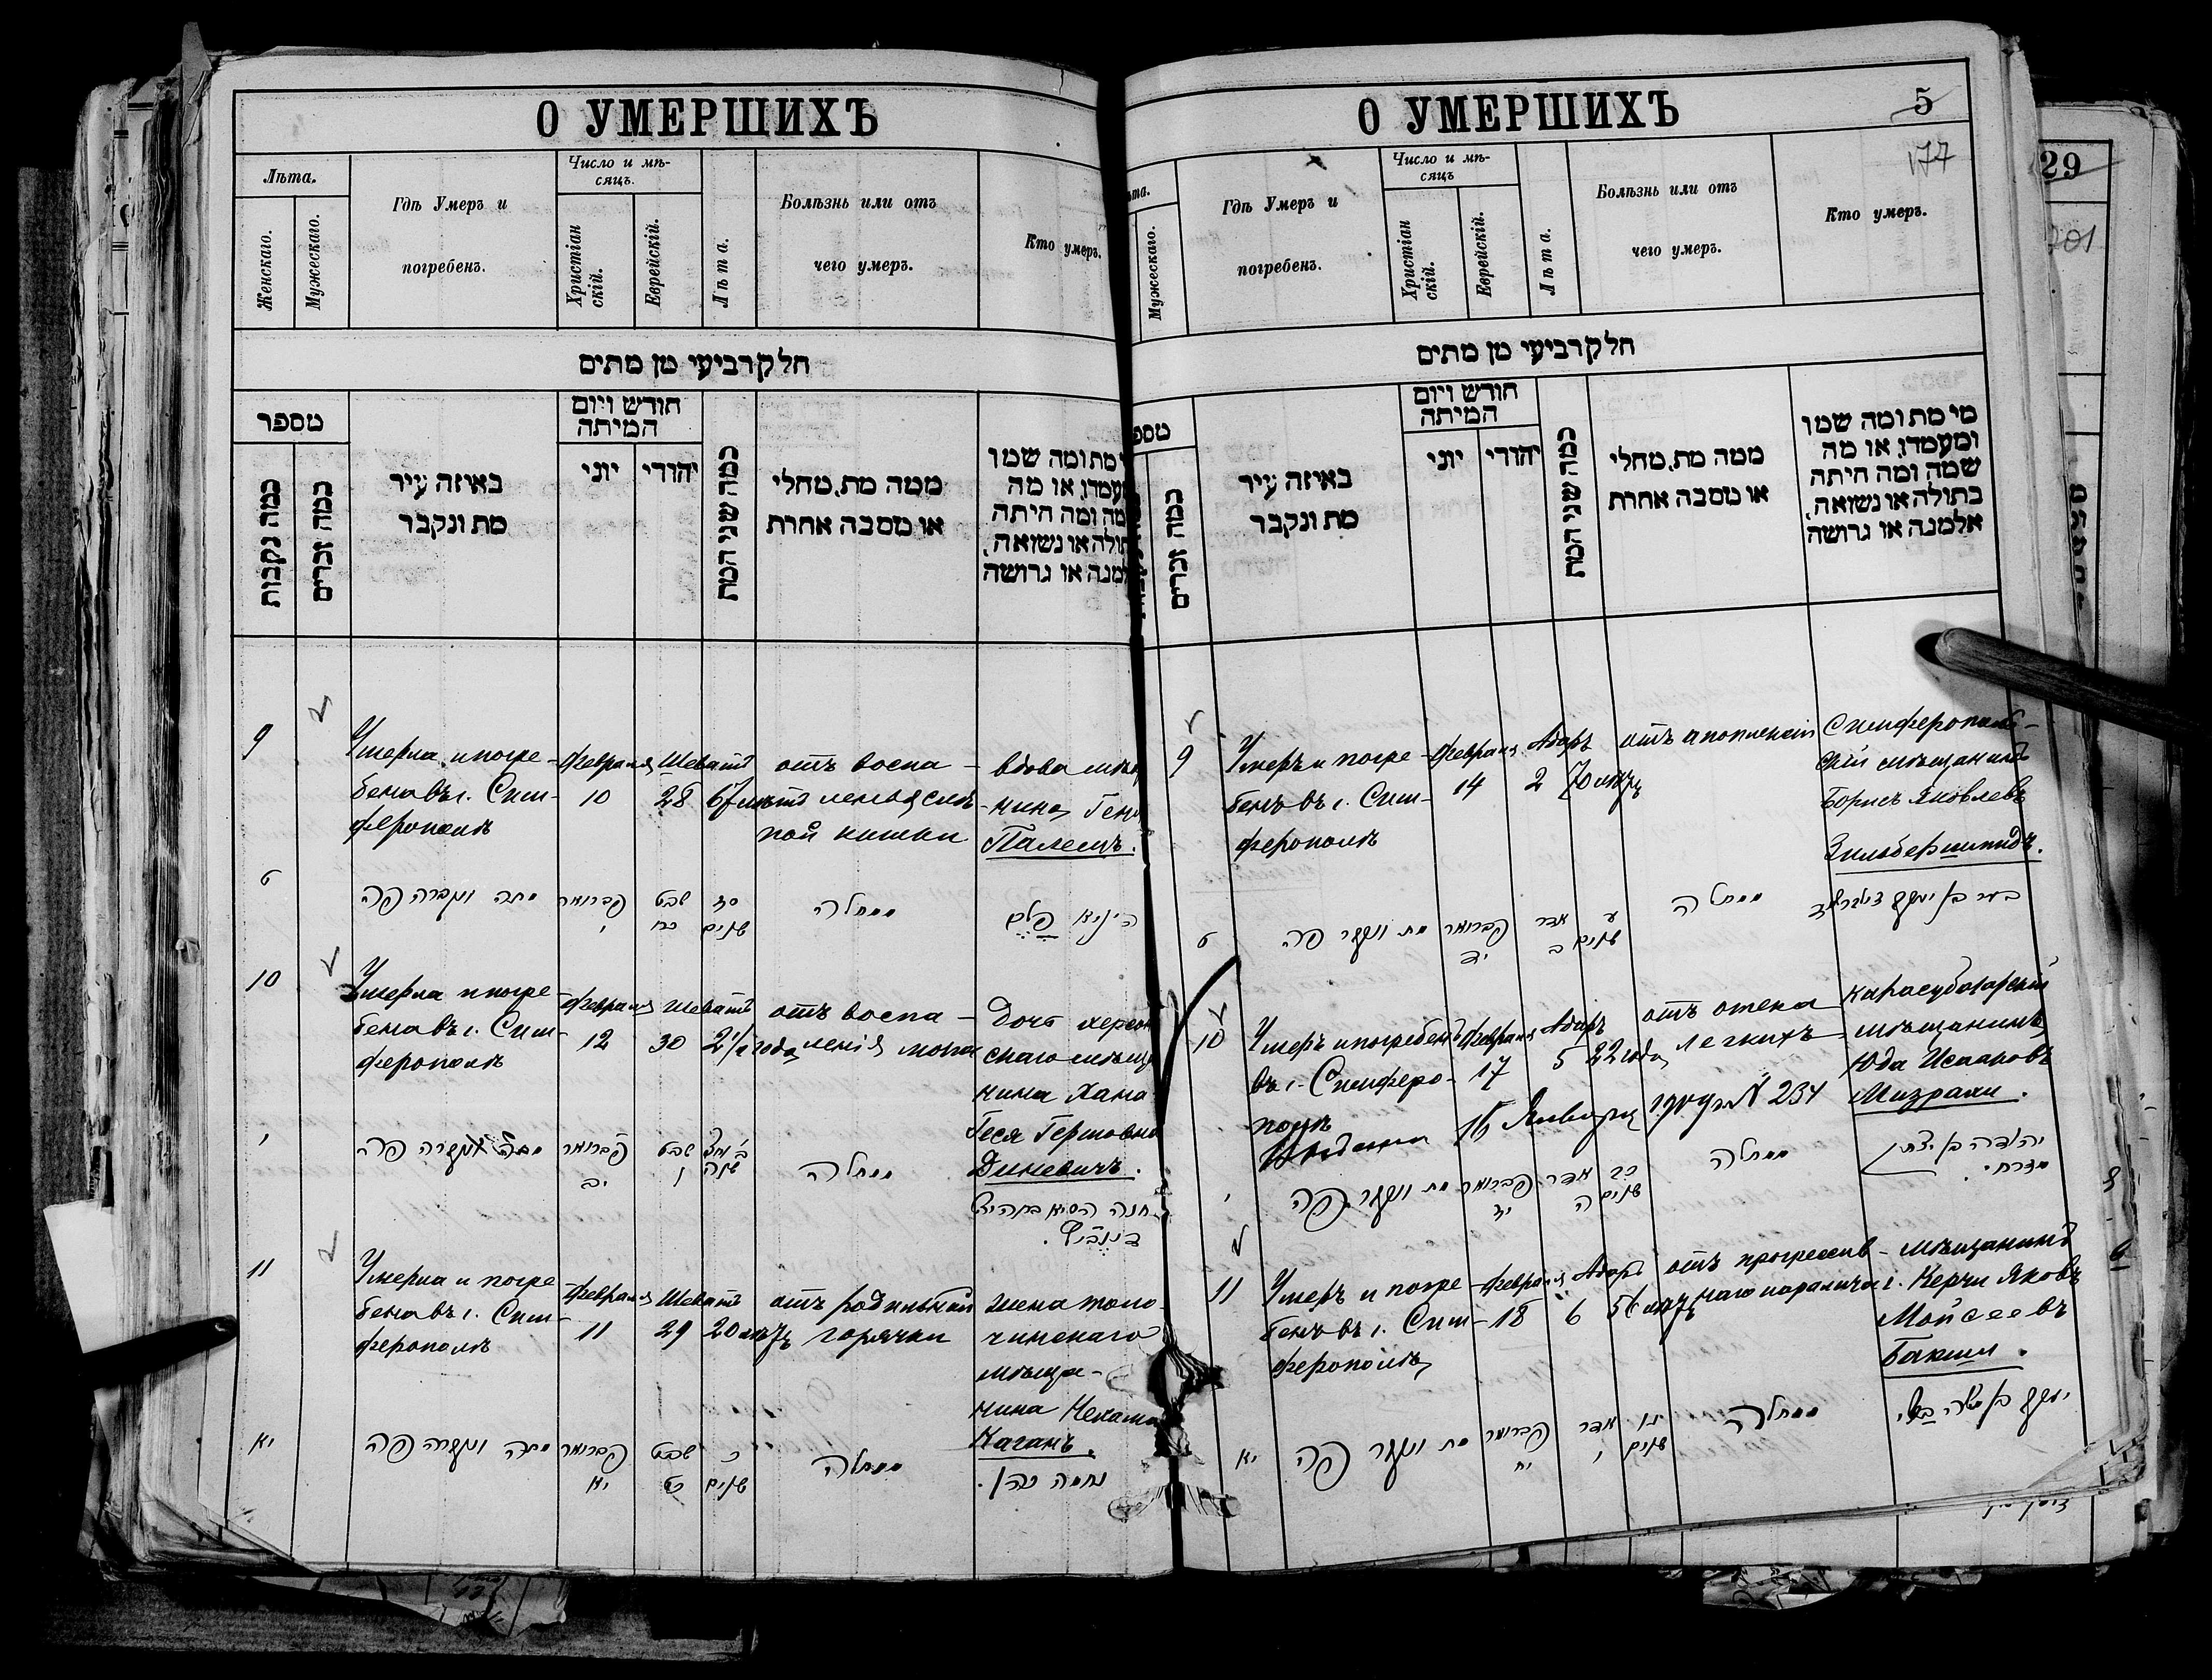 О УМЕРШИХЪ
Лѣта.
Женскаго.
Мужескаго.
Гдѣ Умеръ и
погребенъ.
Число и мѣ-
сяцъ.
Христіан
скій.
Еврейскій.
Лѣта.
Болѣзнь или отъ
чего умеръ.
Кто умеръ.
חלק רביעי מן מתים
מספר
כמה נקבות
כמה זכרים
באיזה עיר
מת ונקבר
חודש ויום
המיתה
יוני
יהודי
כמה שני המת
ממה מת, מחלי
או מסבה אחרת
מת ומה שמו
או מה
ומה חיתה
או נשואה,
או גרושה
9
Умерла и погре-
бена въ г. Сим-
ферополѣ
Февраля
10
Шеватъ
28
67 лѣтъ
отъ воспа-
ленія слѣ-
пой кишки
вдова
Палемъ.
ט
מתה ונקברה פה
פברואר
י
שבט
כח
סז
שנים
ממחלה
פלם
10
Умерла и погре-
бена въ г. Сим-
ферополѣ
Февраля
12
Шеватъ
30
2 1/2 года
отъ воспа-
ленія мозга
Дочь херсон
скаго мѣща
нина Хана
Геся Гершовна
Диневичъ.
י
פה
פברואר
יב
שבט
ל
שנה
ממחלה
חנה הסיא
11
Умерла и погре
бена въ г. Сим-
ферополѣ
Февраля
11
Шеватъ
29
20 лѣтъ
отъ родильной
горячки
жена
мѣща-
нина Нехама
Каганъ.
יא
מתה ונקברה פה
פברואר
יא
שבט
כ
שנים
ממחלה
נחמה כהן.
О УМЕРШИХЪ
5
177
Мужескаго.
Гдѣ Умеръ и
погребенъ.
Число и мѣ-
сяцъ
Христіан
скій.
Еврейскій.
Лѣта.
Болѣзнь или отъ
чего умеръ.
Кто умеръ.
חלק רביעי מן מתים
כמה זכרים
באיזה עיר
מת ונקבר
חודש ויום
המיתה
יוני
יהודי
כמה שני המת
ממה מת, מחלי
או מסבה אחרת
מי מת ומה שמו
ומעמדו, או מה
שמה ומה חיתה
בתולה או נשואה,
אלמנה או גרושה
9
Умеръ и погре-
бенъ въ г. Сим-
ферополѣ
Февраля
14
Адаръ
2
70 лѣтъ
отъ апоплексіи
Симферополь-
скій мѣщанинъ
Борисъ Яковлевъ
Зильбершмидъ.
ט
מת ונקבר פה
פברואר
יד
אדר
ב
ע
שנים
ממחלה
בן יעקב
10
Умеръ и погребенъ
въ г. Симферо-
полѣ
Февраля
17
Адаръ
5
22 года
отъ отека
легкихъ
Карасубазарскій
мѣщанинъ
Юда Исааковъ
Мизрахи.
16 Января
№ 234
י
מת ונקבר פה
פברואר
יז
אדר
ה
כב
שנים
ממחלה
יהודה בן יצחק
מזרחי.
11
Умеръ и погре-
бенъ въ г. Сим-
ферополѣ
Февраля
18
Адаръ
6
56 лѣтъ
отъ прогрессив-
наго паралича
мѣщанинъ
г. Керчи Яковъ
Мойсеевъ
Бакши.
יא
מת ונקבר פה
פברואר
יח
אדר
ו
נו
שנים
ממחלה
יעקב בן משה בקשי
29
201